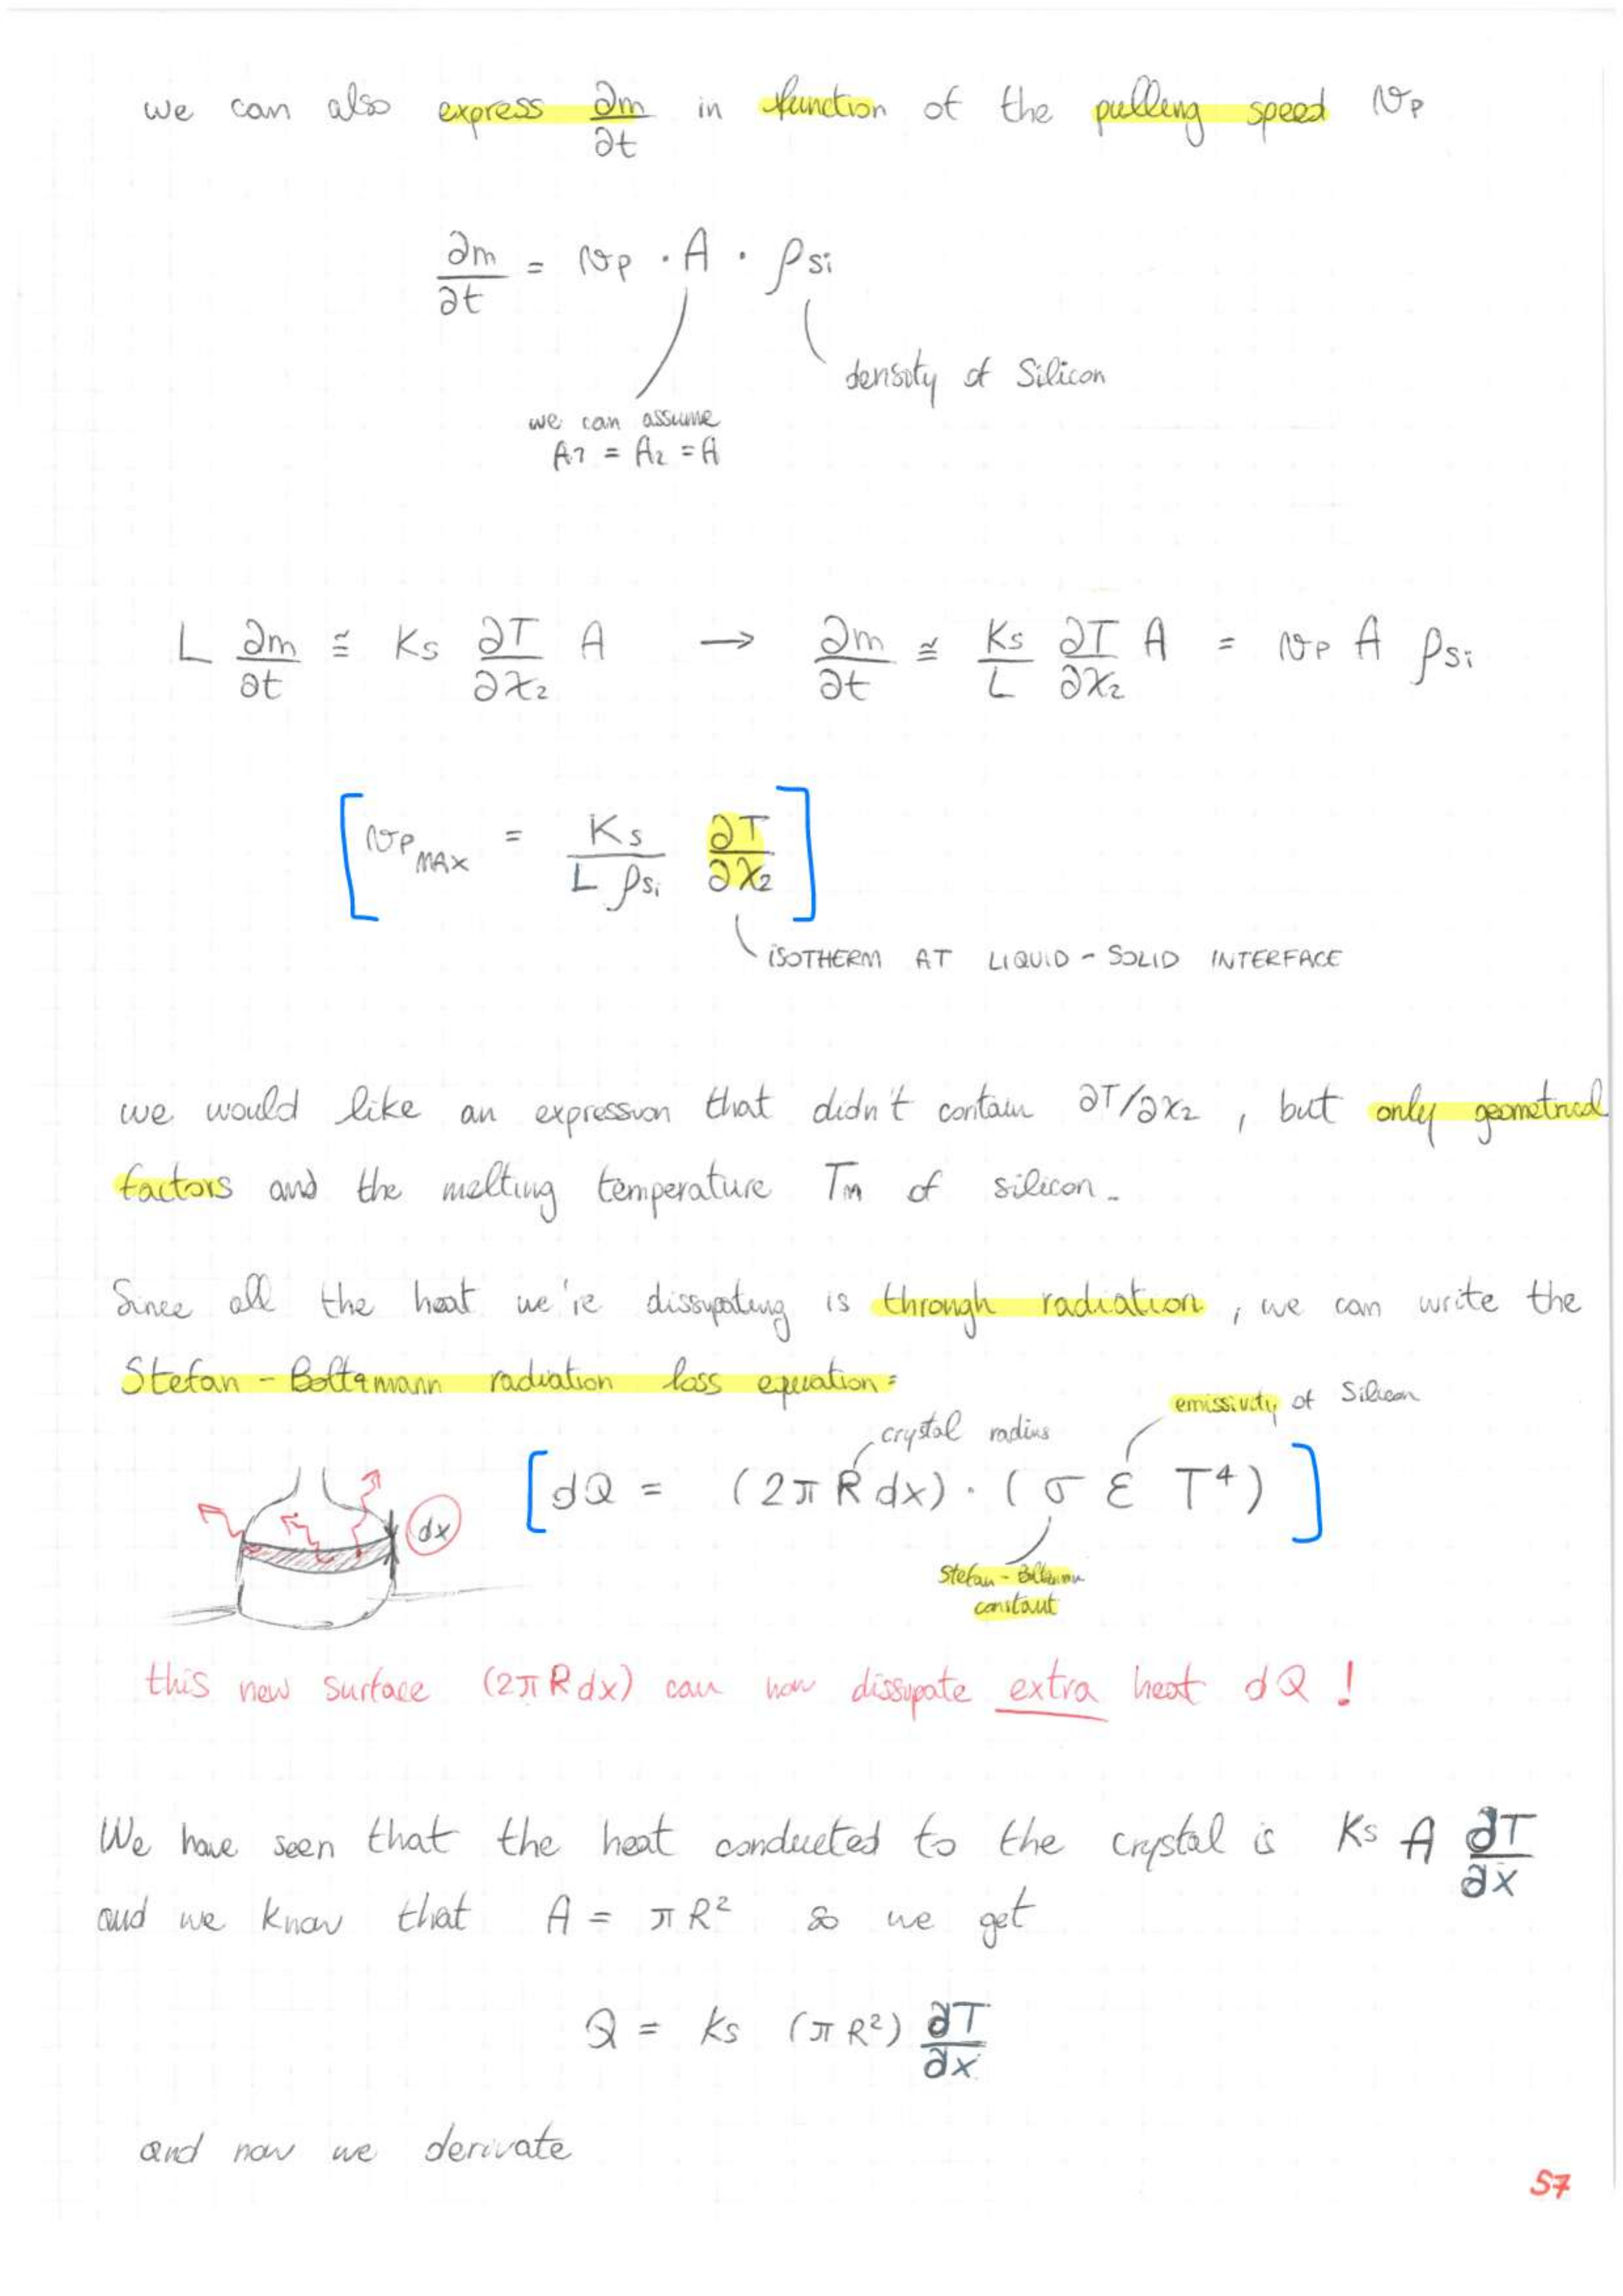 we can also express ∂m/∂t in function of the pulling speed vp
∂m/∂t = vp · A · ρSi
density of Silicon
we can assume
A1 = A2 = A
L ∂m/∂t ≅ Ks ∂T/∂x2 A → ∂m/∂t ≅ Ks/L ∂T/∂x2 A = vp A ρSi
[vp MAX = Ks/(L ρSi) ∂T/∂x2]
ISOTHERM AT LIQUID - SOLID INTERFACE
we would like an expression that didn't contain ∂T/∂x2 , but only geometrical
factors and the melting temperature Tm of silicon.
Since all the heat we're dissipating is through radiation, we can write the
Stefan - Boltzmann radiation loss equation:
emissivity of Silicon
crystal radius
[dQ = (2πR dx) · (σ ε T⁴)]
dx
Stefan - Boltzmann
constant
this new surface (2πR dx) can now dissipate extra heat dQ !
We have seen that the heat conducted to the crystal is Ks A ∂T/∂x
and we know that A = πR² so we get
Q = Ks (πR²) ∂T/∂x
and now we derivate
57